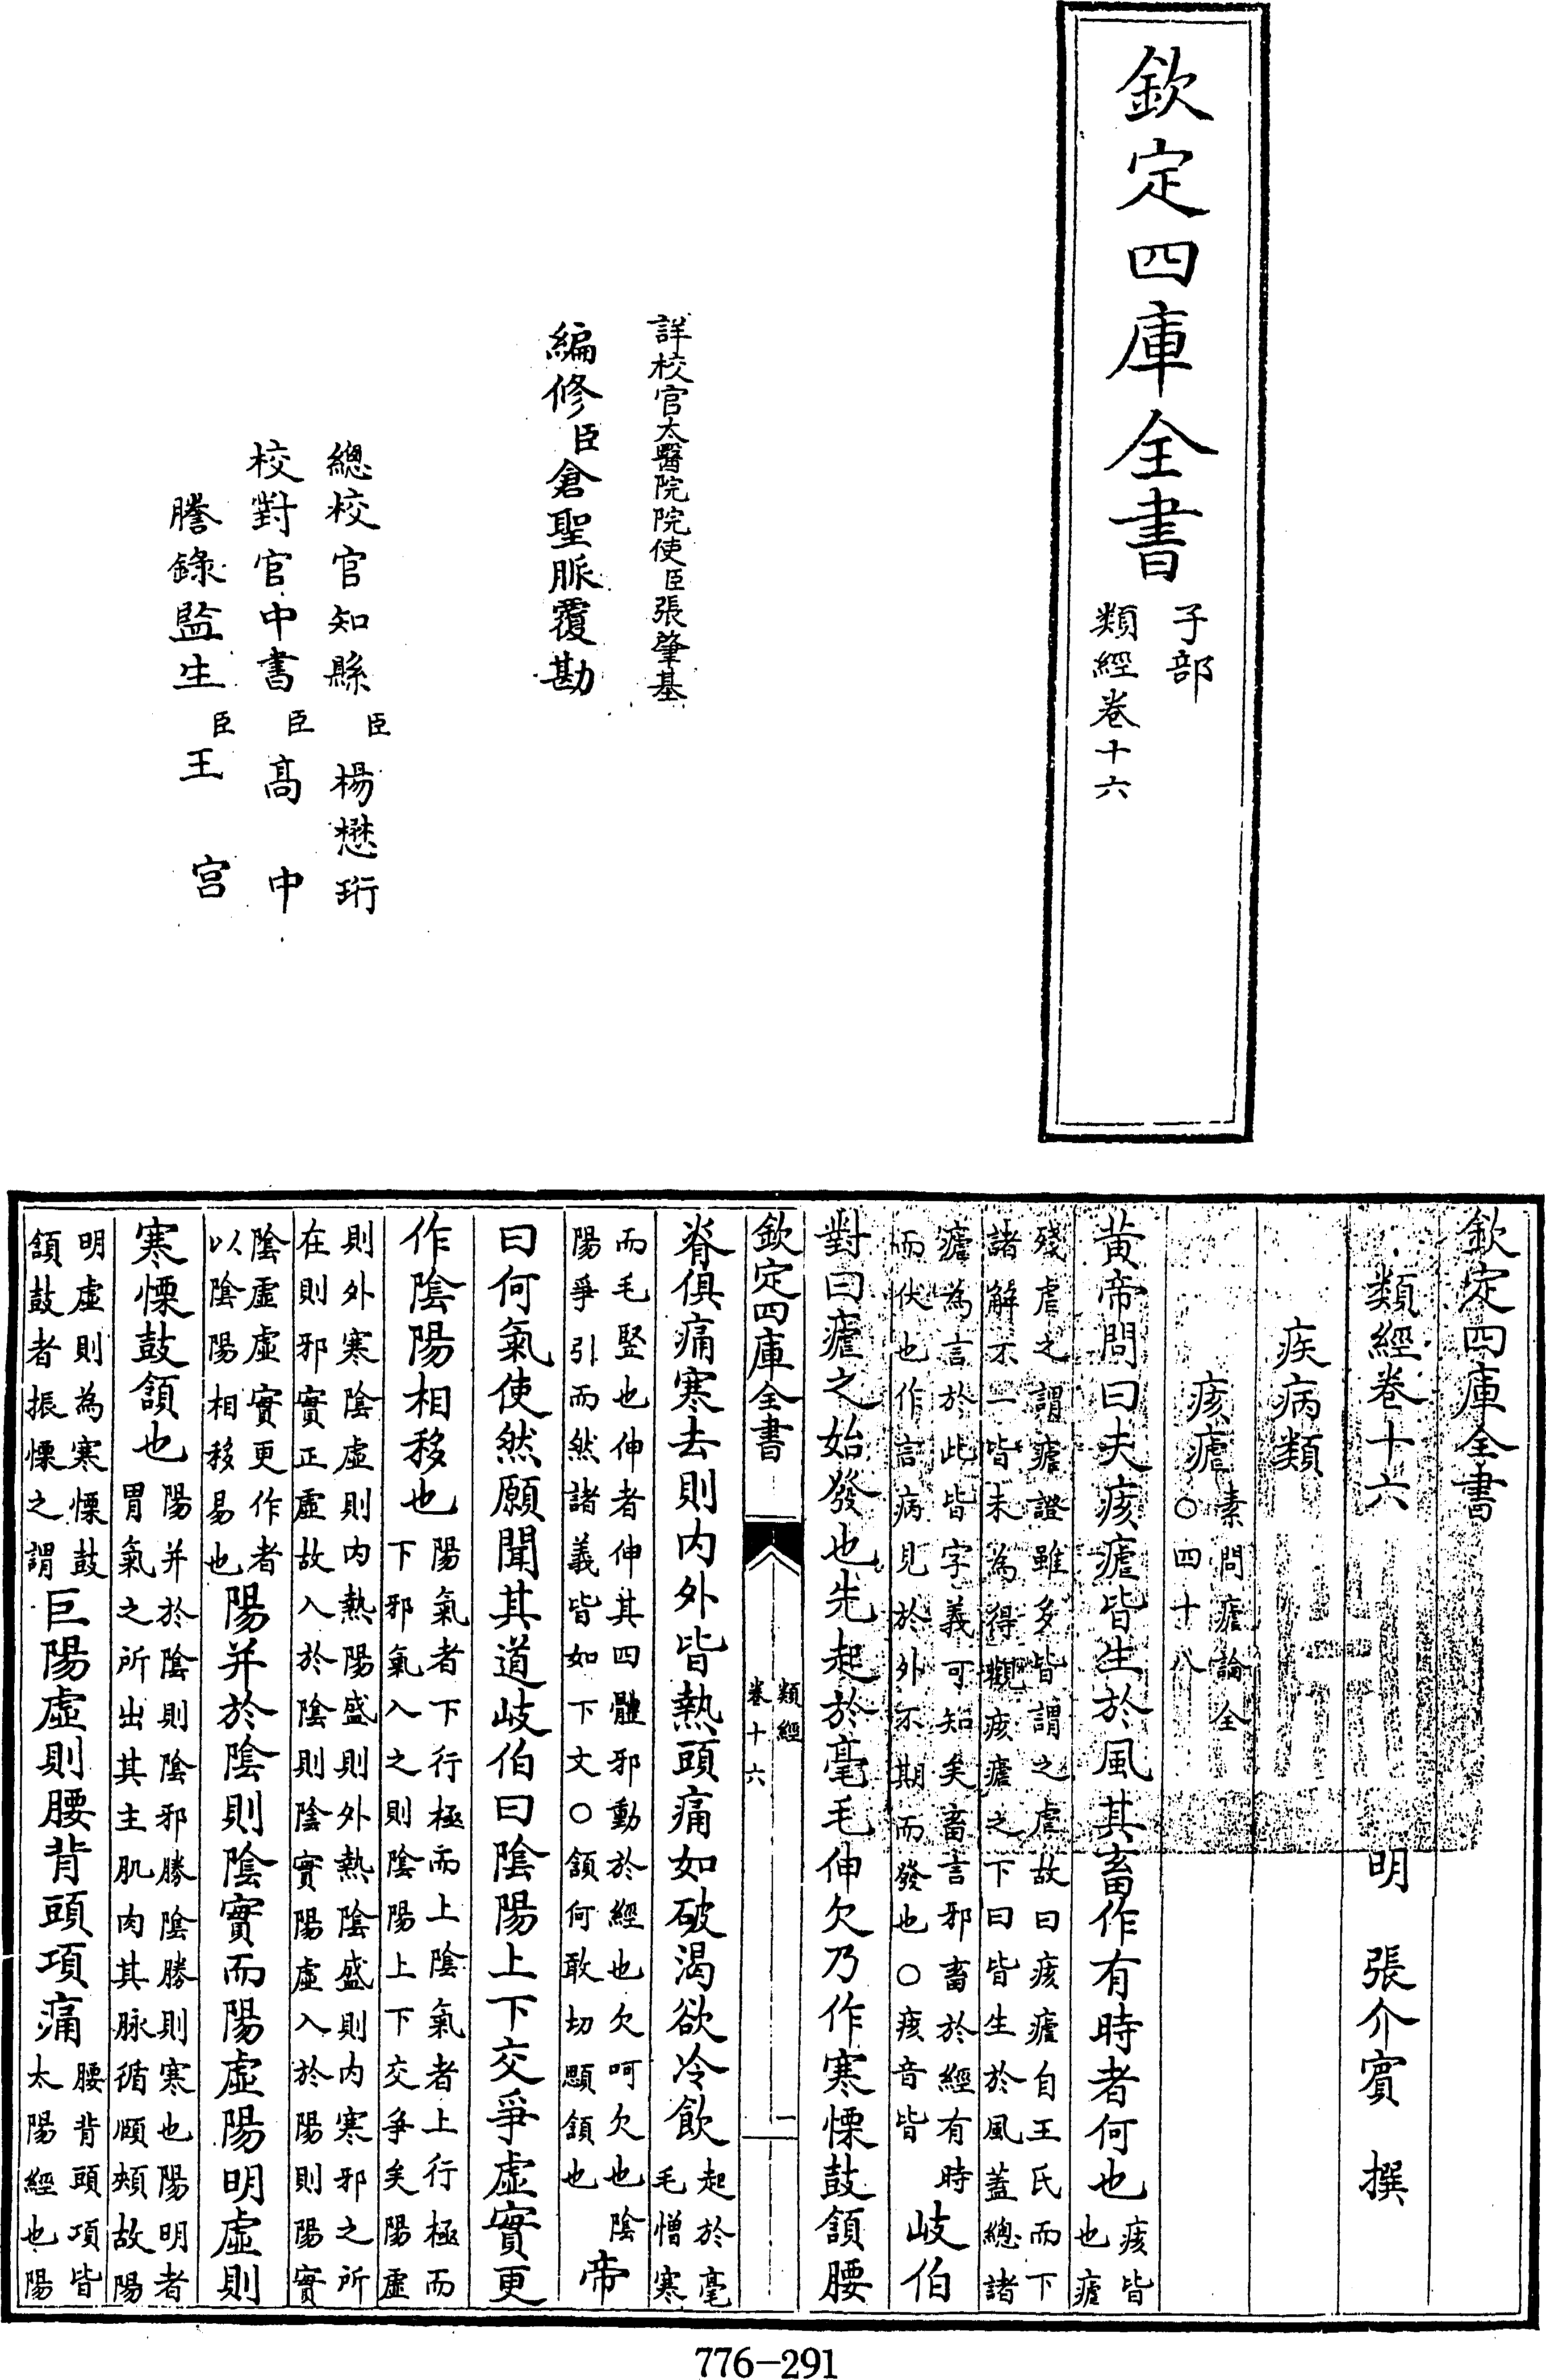 欽定四庫全書
子部
類經卷十六
詳校官太醫院院使臣張肇基
編修臣倉聖脈覆勘
總校官知縣臣楊懋珩
校對官中書臣高中
謄錄監生臣王宮
欽定四庫全書
類經卷十六
明 張介賓 撰
疾病類
痎瘧
素問瘧論全
○四十八
黄帝問曰夫痎瘧皆生於風其畜作有時者何也
痎皆
也瘧
殘虐之謂瘧證雖多皆謂之虐故曰痎瘧自王氏而下
諸解不一皆未為得觀痎瘧之下曰皆生於風蓋總諸
瘧為言於此皆字義可知矣畜言邪畜於經有時
而伏也作言病見於外不期而發也○痎音皆
岐伯
對曰瘧之始發也先起於毫毛伸欠乃作寒慄鼓頷腰
欽定四庫全書
類經
卷十六
二
脊俱痛寒去則内外皆熱頭痛如破渴欲冷飲
起於毫
毛憎寒
而毛竪也伸者伸其四體邪動於經也欠呵欠也陰
陽爭引而然諸義皆如下文○頷何敢切顋頷也
帝
曰何氣使然願聞其道岐伯曰陰陽上下交爭虛實更
作陰陽相移也
陽氣者下行極而上陰氣者上行極而
下邪氣入之則陰陽上下交爭矣陽虛
則外寒陰虛則内熱陽盛則外熱陰盛則内寒邪之所
在則邪實正虛故入於陰則陰實陽虛入於陽則陽實
陰虛虛實更作者
以陰陽相移易也
陽并於陰則陰實而陽虛陽明虛則
寒慄鼓頷也
陽并於陰則陰邪勝陰勝則寒也陽明者
胃氣之所出其主肌肉其脉循頤頰故陽
明虛則為寒慄鼓
頷鼓者振慄之謂
巨陽虛則腰背頭項痛
腰背頭項皆
太陽經也陽
776-291